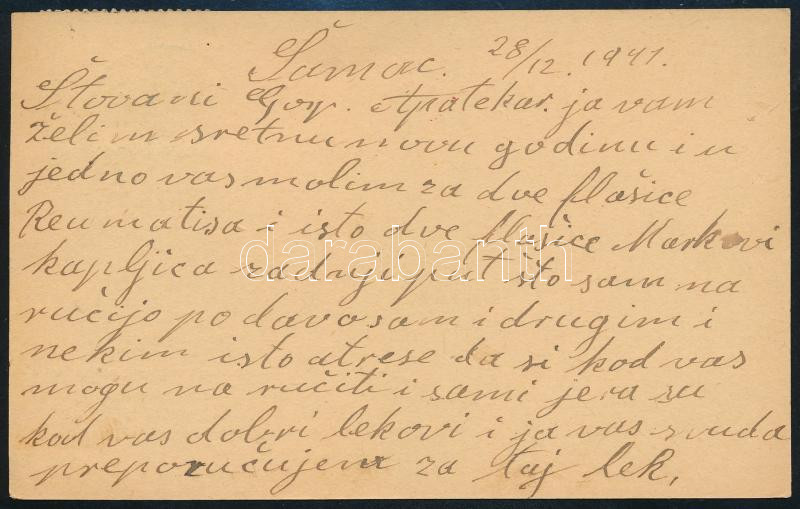 Šamac. 28/12. 1941.
Štovani Gosp. Apatekar. ja vam
želim sretnu novu godinu i u
jedno vas molim za dve flašice
Reumatisa i isto dve flašice Markovi
kapljica zadnji put što sam na
ručijo podavo sam i drugim i
nekim isto atrese da si kod vas
mogu na ručiti i sami jera su
kod vas dobri lekovi i ja vas svuda
preporučujem za taj lek.
darabanth